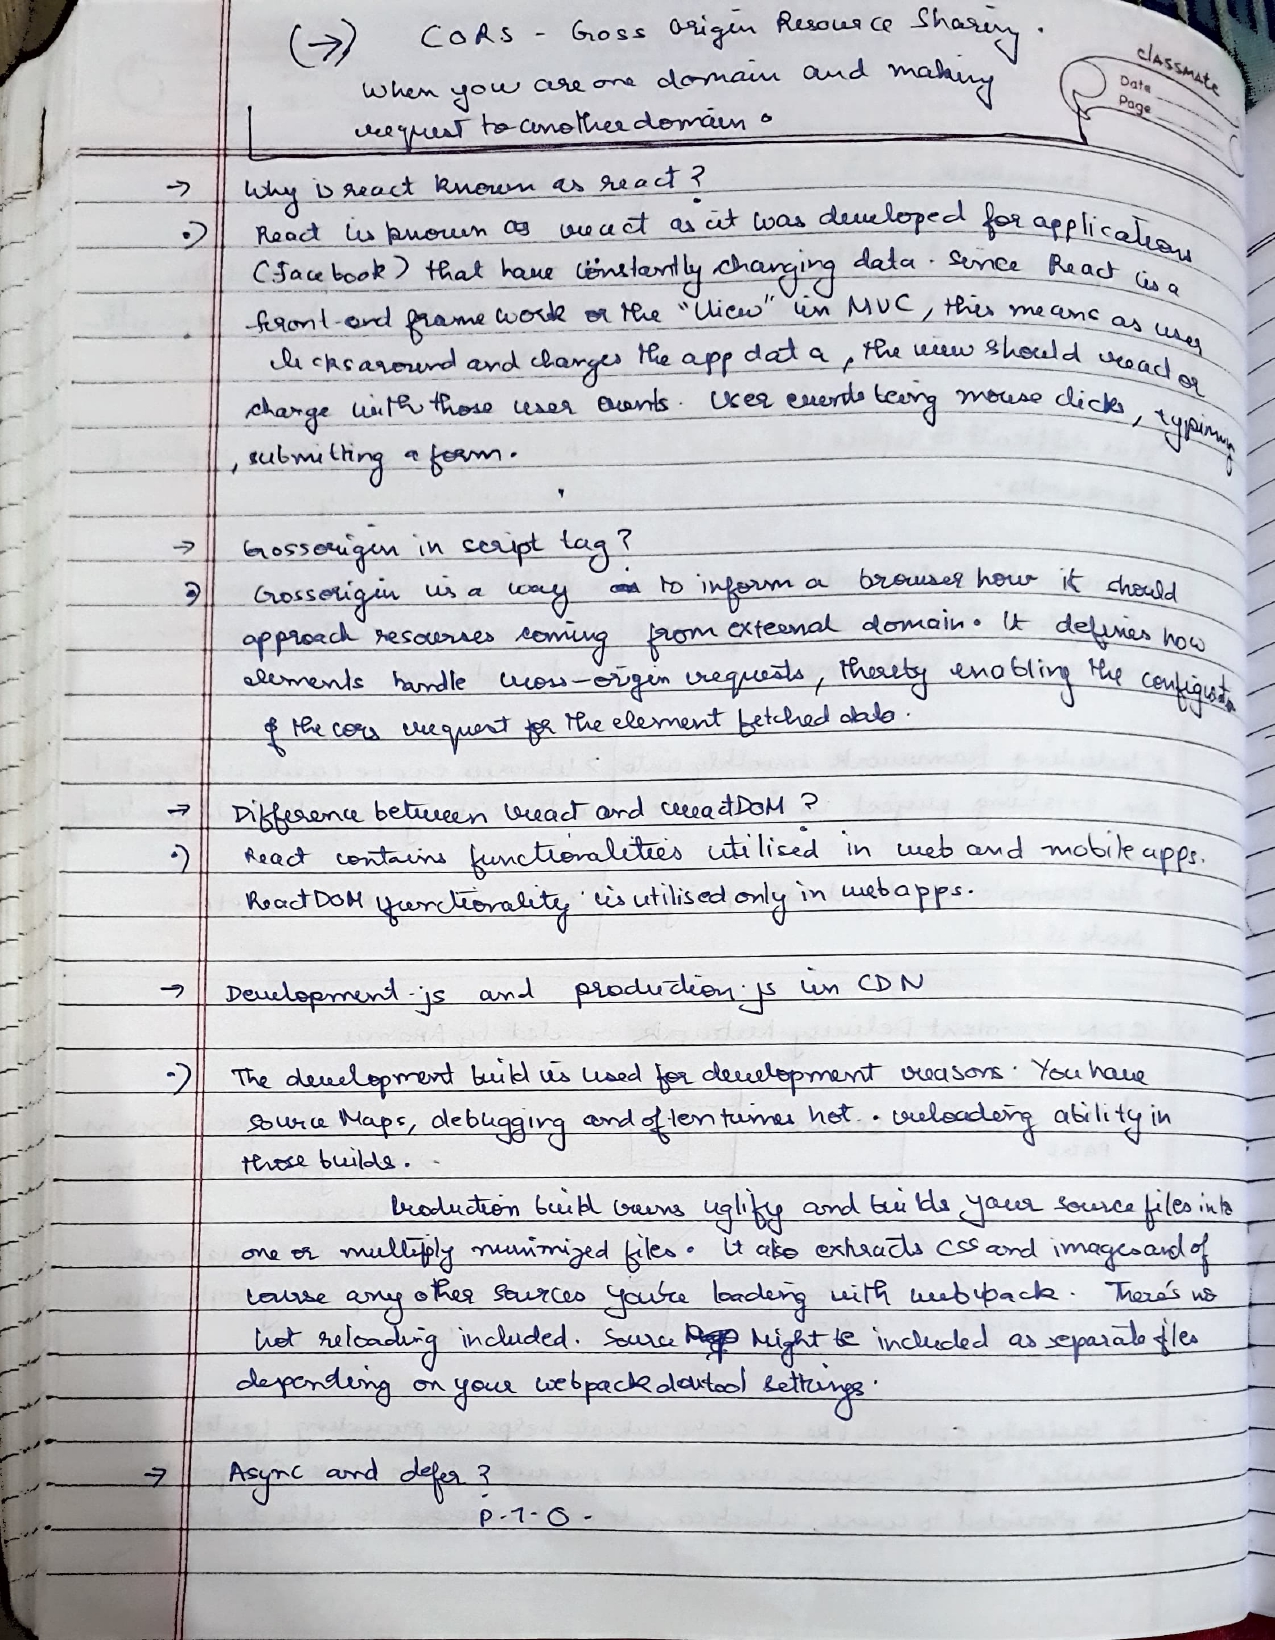 (→) CORS - Cross Origin Resource Sharing.
When you are one domain and making
request to another domain.
classmate
Date
Page
→ Why is react known as react?
•) React is known as react as it was developed for applications
(facebook) that have constantly changing data. Since React is a
front-end frame work or the "View" in MVC, this means as user
clicks around and changes the app data, the view should react or
change with those user events. User events being mouse clicks, typing
, submitting a form.
→ Crossorigin in script tag?
•) Crossorigin is a way to inform a browser how it should
approach resourses coming from external domain. It defines how
elements handle cross-origin requests, thereby enabling the configuration
of the cors request for the element fetched data.
→ Difference between react and reactDOM?
•) React contains functionalities utilised in web and mobile apps.
ReactDOM functionality is utilised only in web apps.
→ Development.js and production.js in CDN
•) The development build is used for development reasons. You have
Source Maps, debugging and often times hot. reloading ability in
those builds.
Production build runs uglify and builds your source files into
one or multiply minimized files. It also extracts CSS and images and of
course any other sources you're loading with webpack. There's no
hot reloading included. Source Might be included as separate files
depending on your webpack devtool settings.
→ Async and defer?
P.T.O.